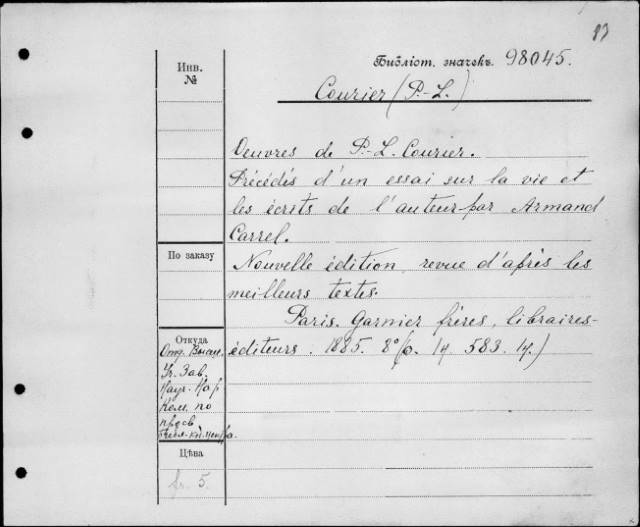 83
Инв.
№
Библіот. значекъ 98045.
Courier (P.-L.)
Oeuvres de P.-L. Courier.
Précédés d'un essai sur la vie et
les écrits de l'auteur par Armand
Carrel.
По заказу
Nouvelle édition, revue d'après les
meilleurs textes.
Paris. Garnier frères, libraires-
Откуда
éditeurs. 1885. 8º
583.
Отд. Высш.
Уч. Зав.
Науч. Нар
Ком. по
просв
Цѣна
fr. 5.